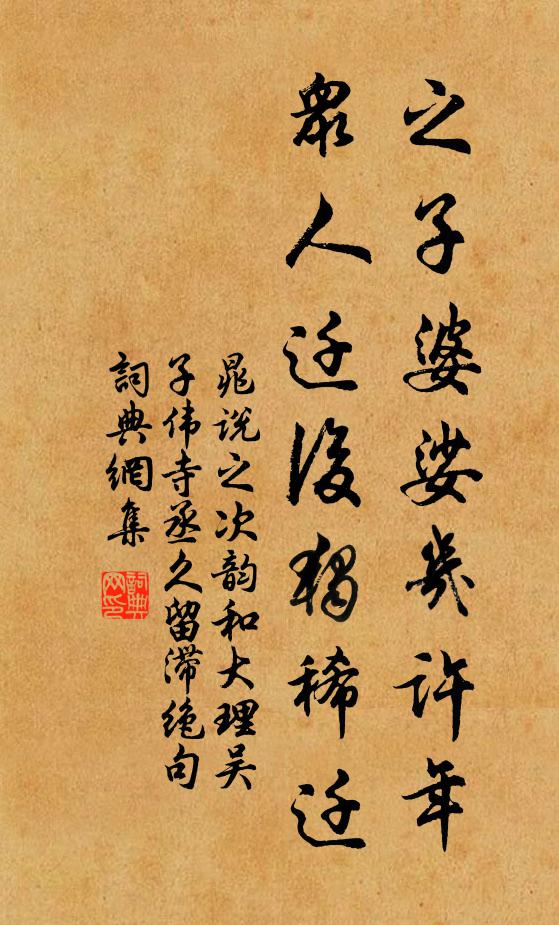 之子婆娑幾許年
眾人迁後獨稀迁
晁说之次韵和大理吴
子伟寺丞久留滞绝句
詞典網集
詞典網印